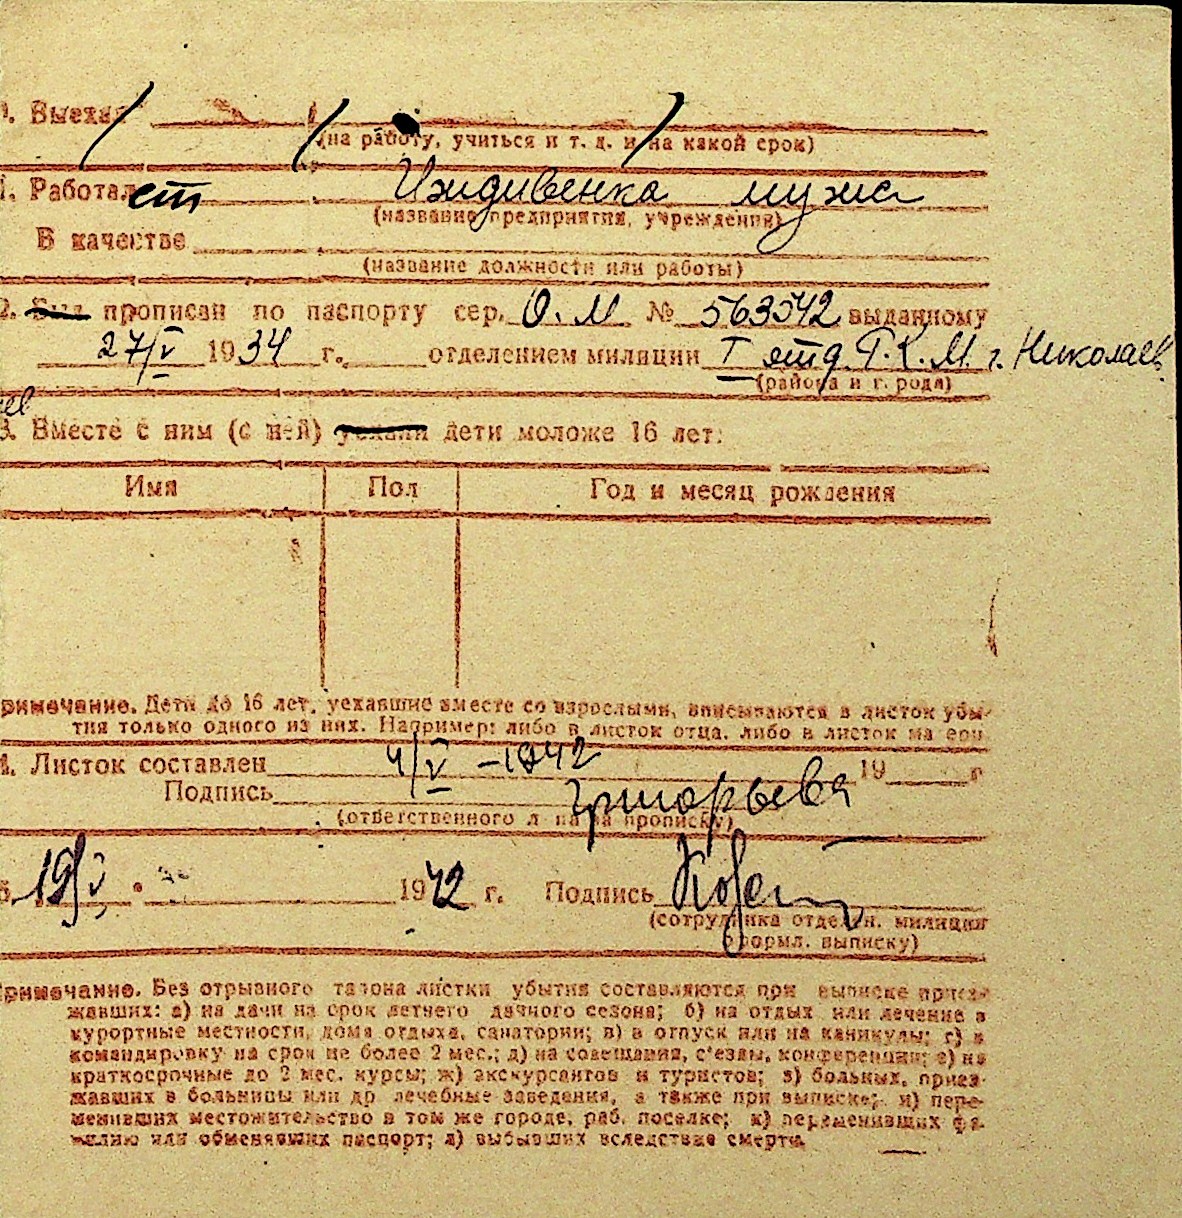 Выехал
(на работу, учиться и т. д. и на какой срок)
Работает Иждивенка мужа
(название предприятия, учреждения)
В качестве
(название должности или работы)
2. Был прописан по паспорту сер. О. М № 563542 выданному
27/V 1934 г. отделением милиции I отд. Г. К. М. г. Николаев
(района и города)
3. Вместе с ним (с ней) уехали дети моложе 16 лет:
Имя Пол Год и месяц рождения
римечание. Дети до 16 лет, уехавшие вместе со взрослыми, вписываются в листок убы-
тия только одного из них. Например: либо в листок отца, либо в листок ма ери
4. Листок составлен 4/V – 1942 19 г
Подпись Григорьева
(ответственного л ца за прописку)
19/V 1942 г. Подпись
(сотрудника отделен. милиции
оформл. выписку)
римечание. Без отрывного талона листки убытия составляются при выписке приез-
жавших: а) на дачи на срок летнего дачного сезона; б) на отдых или лечение в
курортные местности, дома отдыха, санатории; в) в отпуск или на каникулы; г) в
командировку на срок не более 2 мес.; д) на совещания, с'езды, конференции; е) на
краткосрочные до 2 мес. курсы; ж) экскурсантов и туристов; з) больных, приез-
жавших в больницы или др лечебные заведения, а также при выписке; и) пере-
менивших местожительство в том же городе, раб. поселке; к) переменивших фа-
милию или обменявших паспорт; л) выбывших вследствие смерти.